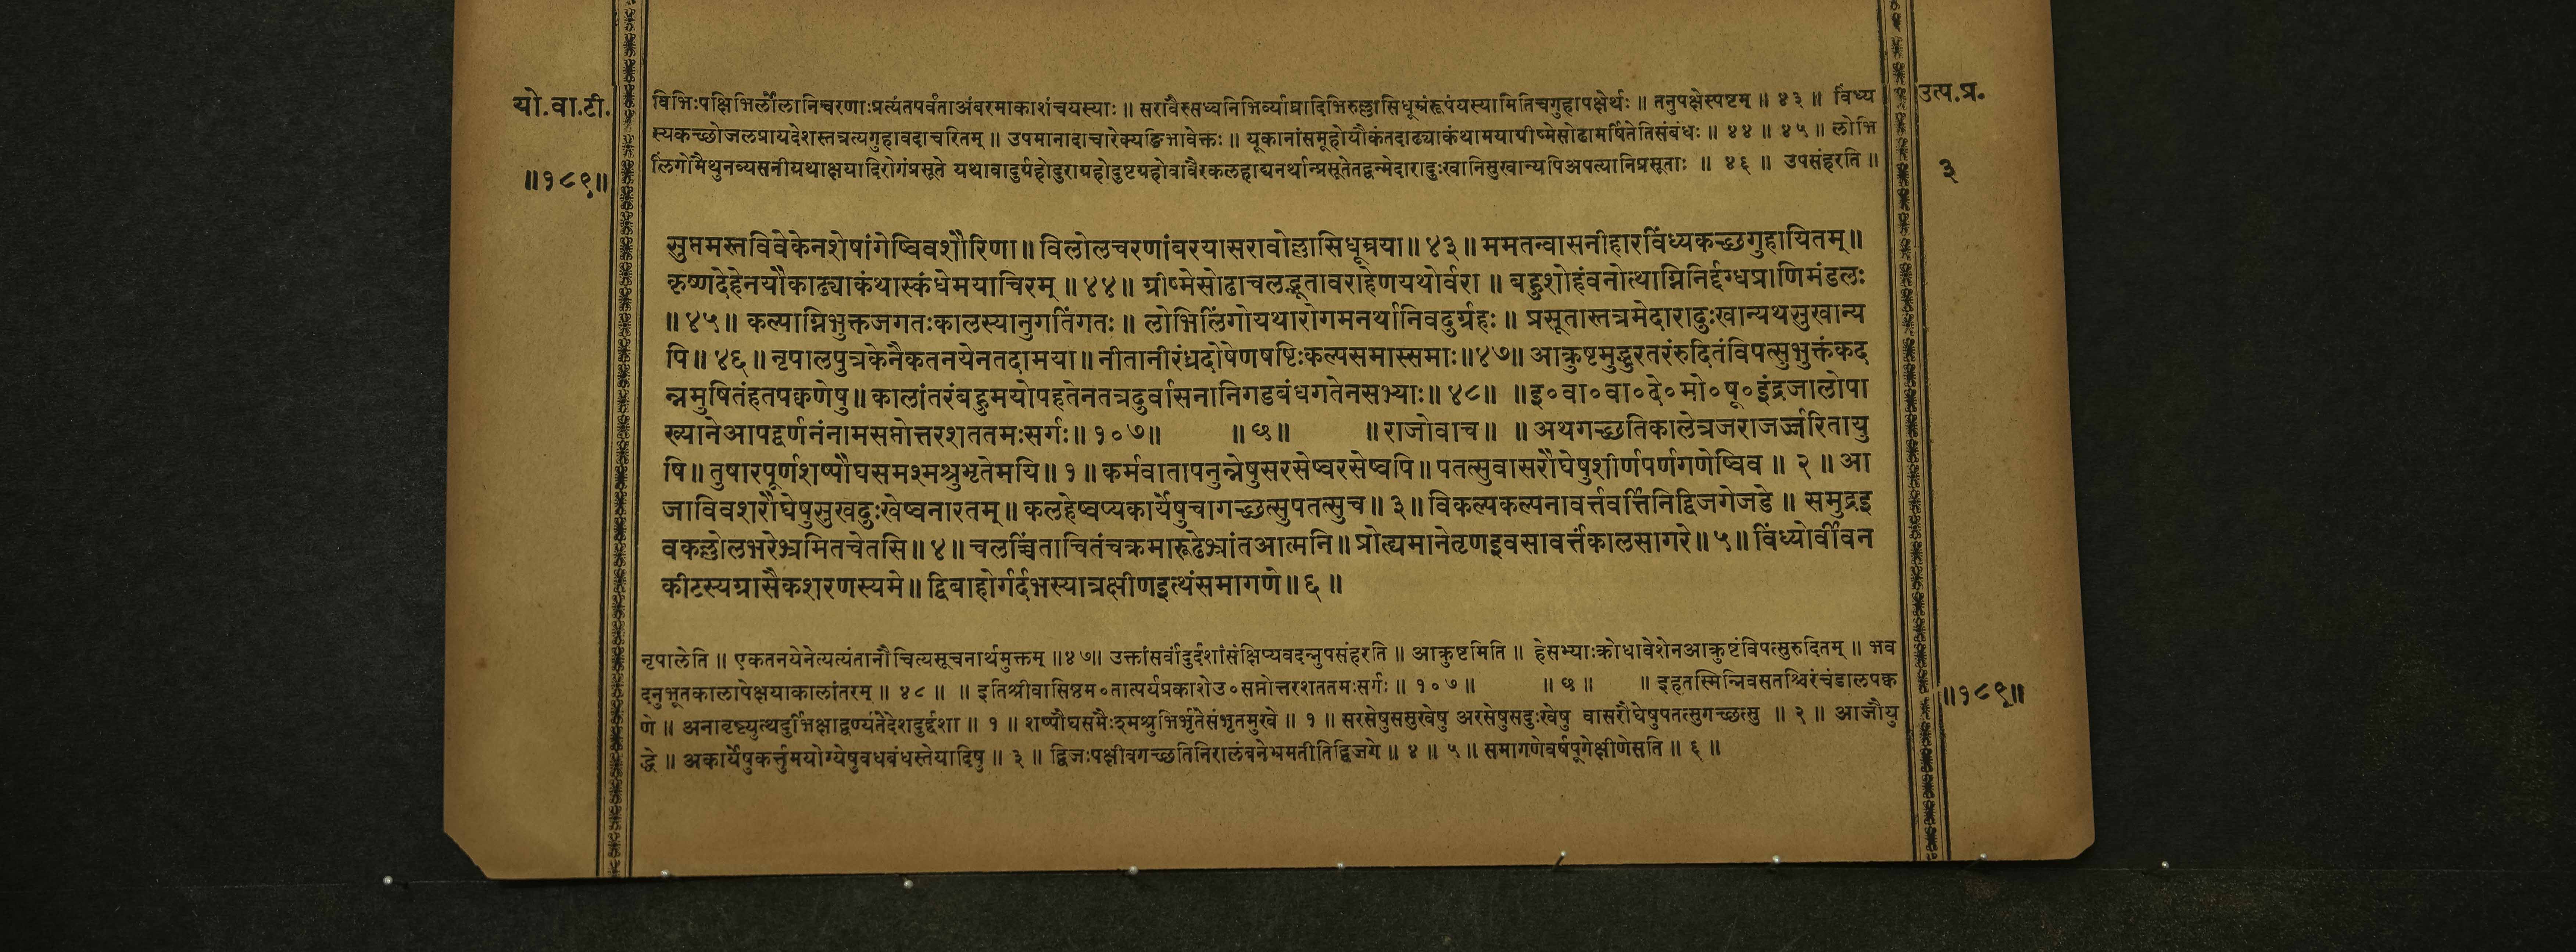 यो.वा.टी.
॥१८९॥
उत्प.प्र.
३
विभिःपक्षिभिर्लोलानिचरणाःप्रत्यंतपर्वताअंबरमाकाशंचयस्याः ॥ सरावैरुसध्वनिभिर्व्याघ्रादिभिरुल्लासिधूम्रंरूपंयस्यामितिचगुहापक्षेर्थः ॥ तनुपक्षेस्पष्टम् ॥ ४३ ॥ विंध्य
स्यकच्छोजलप्रायदेशस्तत्रत्यगुहावदाचरितम् ॥ उपमानादाचारेक्यङिभावेक्तः ॥ यूकानांसमूहोयौकंतदाढ्याकंथामयाग्रीष्मेसोढामर्षितेतिसंबंधः ॥ ४४ ॥ ४५ ॥ लोभि
लिंगोमैथुनव्यसनीयथाक्षयादिरोगंप्रसूते यथावादुर्ग्रहोदुराग्रहोदुष्टग्रहोवावैरकलहाद्यनर्थान्प्रसूतेतद्वन्मेदारादुःखानिसुखान्यपिअपत्यानिप्रसूताः ॥ ४६ ॥ उपसंहरति ॥
सुप्तमस्तविवेकेनशेषांगेष्विवशौरिणा ॥ विलोलचरणांबरयासरावोल्लासिधूम्रया ॥ ४३ ॥ ममतन्वासनीहारविंध्यकच्छगुहायितम् ॥
कृष्णदेहेनयौकाढ्याकंथास्कंधेमयाचिरम् ॥ ४४ ॥ ग्रीष्मेसोढाचलद्भूतावराहेणयथोर्वरा ॥ बहुशोहंवनोत्थाग्निनिर्दग्धप्राणिमंडलः
॥ ४५ ॥ कल्पाग्निभुक्तजगतःकालस्यानुगतिंगतः ॥ लोभिलिंगोयथारोगमनर्थानिवदुर्ग्रहः ॥ प्रसूतास्तत्रमेदारादुःखान्यथसुखान्य
पि ॥ ४६ ॥ नृपालपुत्रकेनैकतनयेनतदामया ॥ नीतानीरंध्रदोषेणषष्टिःकल्पसमास्समाः ॥४७॥ आक्रुष्टमुद्धुरतरंरुदितंविपत्सुभुक्तंकद
न्नमुषितंहतपक्कणेषु ॥ कालांतरंबहुमयोपहतेनतत्रदुर्वासनानिगडबंधगतेनसभ्याः ॥ ४८ ॥ ॥ इ॰वा॰वा॰दे॰मो॰षू॰इंद्रजालोपा
ख्यानेआपद्वर्णनंनामसप्तोत्तरशततमःसर्गः ॥ १०७ ॥ ॥ छ ॥ ॥ राजोवाच ॥ ॥ अथगच्छतिकालेत्रजराजर्ज्जरितायु
षि ॥ तुषारपूर्णशष्पौघसमश्मश्रुभृतेमयि ॥ १ ॥ कर्मवातापनुन्नेषुसरसेष्वरसेष्वपि ॥ पतत्सुवासरौघेषुशीर्णपर्णगणेष्विव ॥ २ ॥ आ
जाविवशरौघेषुसुखदुःखेष्वनारतम् ॥ कलहेष्वप्यकार्येषुचागच्छत्सुपतत्सुच ॥ ३ ॥ विकल्पकल्पनावर्त्तवर्त्तिनिद्विजगेजडे ॥ समुद्रइ
वकल्लोलभरेभ्रमितचेतसि ॥ ४ ॥ चलच्चिंताचितंचक्रमारूढेभ्रांतआत्मनि ॥ प्रोह्यमानेतृणइवसावर्त्तकालसागरे ॥ ५ ॥ विंध्योर्वीवन
कीटस्यग्रासैकशरणस्यमे ॥ द्विबाहोर्गर्दभस्यात्रक्षीणइत्थंसमागणे ॥ ६ ॥
नृपालेति ॥ एकतनयेनेत्यत्यंतानौचित्यसूचनार्थमुक्तम् ॥४७॥ उक्तांसर्वादुर्दशांसंक्षिप्यवदन्नुपसंहरति ॥ आक्रुष्टमिति ॥ हेसभ्याःक्रोधावेशेनआक्रुष्टंविपत्सुरुदितम् ॥ भव
दनुभूतकालापेक्षयाकालांतरम् ॥ ४८ ॥ ॥ इतिश्रीवासिष्ठम॰तात्पर्यप्रकाशेउ॰सप्तोत्तरशततमःसर्गः ॥ १०७ ॥ ॥ छ ॥ ॥ इहतस्मिन्निवसतश्चिरंचंडालपक्क
णे ॥ अनावृष्ट्युत्थदुर्भिक्षाद्वर्ण्यतेदेशदुर्द्दशा ॥ १ ॥ शष्पौघसमैःश्मश्रुभिर्भृतेसंभृतमुखे ॥ १ ॥ सरसेषुससुखेषु अरसेषुसदुःखेषु वासरौघेषुपतत्सुगच्छत्सु ॥ २ ॥ आजौयु
द्धे ॥ अकार्येषुकर्त्तुमयोग्येषुवधबंधस्तेयादिषु ॥ ३ ॥ द्विजःपक्षीवगच्छतिनिरालंबनेभ्रमतीतिद्विजगे ॥ ४ ॥ ५ ॥ समागणेवर्षपूगेक्षीणेसति ॥ ६ ॥
॥१८९॥